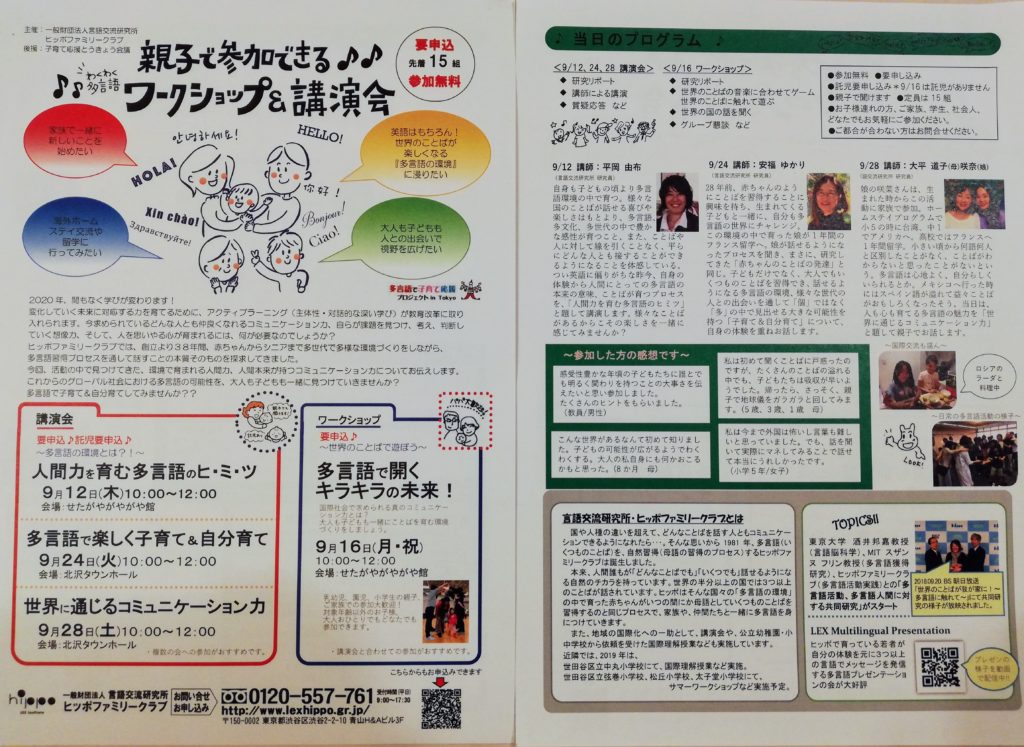 主催：一般財団法人言語交流研究所
ヒッポファミリークラブ
後援：子育て応援とうきょう会議
要申込
先着15組
参加無料
わくわく
多言語
親子で参加できる♪♪
ワークショップ＆講演会
家族で一緒に
新しいことを
始めたい
안녕하세요!
HELLO!
HOLA!
英語はもちろん！
世界のことばが
楽しくなる
『多言語の環境』
に浸りたい
你好！
Xin chào!
Здравствуйте!
Bonjour!
Ciao!
海外ホーム
ステイ交流や
留学に
行ってみたい
大人も子どもも
人との出会いで
視野を広げたい
多言語で子育て応援
プロジェクト in Tokyo
2020年、間もなく学びが変わります！
変化していく未来に対応する力を育てるために、アクティブラーニング（主体性・対話的な深い学び）が教育改革に取り
入れられます。今求められているどんな人とも仲良くなれるコミュニケーション力、自らが課題を見つけ、考え、判断し
ていく想像力、そして、人を思いやる心が育まれるには、何が必要なのでしょうか？
ヒッポファミリークラブでは、創立より38年間、赤ちゃんからシニアまで多世代で多様な環境づくりをしながら、
多言語習得プロセスを通して話すことの本質そのものを探求してきました。
今回、活動の中で見つけてきた、環境で育まれる人間力、人間本来が持つコミュニケーション力についてお伝えします。
これからのグローバル社会における多言語の可能性を、大人も子どもも一緒に見つけていきませんか？
多言語で子育て＆自分育てしてみませんか？？
講演会
要申込♪託児要申込♪
～多言語の環境とは？！～
人間力を育む多言語のヒ・ミ・ツ
9月12日(木)10:00～12:00
会場：せたがやがやがや館
多言語で楽しく子育て＆自分育て
9月24日(火)10:00～12:00
会場：北沢タウンホール
世界に通じるコミュニケーション力
9月28日(土)10:00～12:00
会場：北沢タウンホール
・複数の会への参加がおすすめです。
ワークショップ
要申込♪
～世界のことばで遊ぼう～
多言語で開く
キラキラの未来！
国際社会で求められる真のコミュニケー
ション力とは？
大人も子どもも一緒にことばを育む環境
づくりをしましょう。
9月16日(月・祝)
10:00～12:00
会場：せたがやがやがや館
乳幼児、園児、小学生の親子、
ご家族での参加大歓迎！
対象年齢以外のお子様、
大人おひとりでもどなたでも
参加できます。
・講演会と合わせての参加がおすすめです。
こちらからもお申込みできます
hippo
一般財団法人 言語交流研究所
ヒッポファミリークラブ
お問い合せ
お申し込み
0120-557-761
受付時間(平日)
9:00～17:30
http://www.lexhippo.gr.jp/
〒150-0002 東京都渋谷区渋谷2-2-10 青山H&Aビル3F
♪ 当日のプログラム ♪
＜9/12、24、28 講演会＞
◆ 研究リポート
◆ 講師による講演
◆ 質疑応答 など
＜9/16 ワークショップ＞
◆ 研究リポート
◆ 世界のことばの音楽に合わせてゲーム
世界のことばに触れて遊ぶ
◆ 世界の国の話を聞く
◆ グループ懇談 など
●参加無料 ●要申し込み
●託児要申し込み＊9/16は託児がありません
●親子で聞けます ●定員は15組
●お子様連れの方、ご家族、学生、社会人、
どなたでもお気軽にご参加ください。
●ご都合が合わない方はお問合せください。
9/12 講師：平岡 由布
(言語交流研究所 研究員)
自身も子どもの頃より多言
語環境の中で育つ。様々な
国のことばが話せる喜びや
楽しさはもとより、多言語、
多文化、多世代の中で豊か
な感性が育つこと。また、ことばや
人に対して線を引くことなく、平ら
にどんな人とも接することができ
るようになることを体感している。
つい英語に偏りがちな昨今、自身の
体験から人間にとっての多言語
の本来の意味、ことばが育つプロセス
を、「人間力を育む多言語のヒミツ」
と題して講演します。様々なことば
があるからこその楽しさを一緒に
感じてみませんか？
9/24 講師：安福 ゆかり
(言語交流研究所 研究員)
28年前、赤ちゃんのよう
にことばを習得することに
興味を持ち、生まれてくる
子どもと一緒に、自分も多
言語の世界にチャレンジ。
この環境の中で育った娘が1年間の
フランス留学へ。娘が話せるようになっ
たプロセスを聞き、まさに、研究し
てきた「赤ちゃんのことばの発達」と
同じ。子どもだけでなく、大人でもい
くつものことばを習得でき、話せるよ
うになる多言語の環境、様々な世代の
人との出会いを通して「個」ではなく
「多」の中で見出せる大きな可能性を
持つ「子育て＆自分育て」について、
自身の体験を重ねお話します。
9/28 講師：大平 道子(母)咲奈(娘)
(言語交流研究所 研究員)
娘の咲菜さんは、生
まれた時からこの活
動に家族で参加。ホー
ムステイプログラムで
小5の時に台湾、中1
でアメリカへ。高校ではフランスへ
1年間留学。小さい頃から何語何人
と区別したことがなく、ことばがわ
からないと思ったことがないとい
う。多言語は心地よく、自分らしく
いられるとか。メキシコへ行った時
にはスペイン語が溢れて益々ことば
がおもしろくなったそう。当日は、
人も心も育てる多言語の魅力を「世
界に通じるコミュニケーション力」
と題して親子でお話します。
～参加した方の感想です～
感受性豊かな年頃の子どもたちに誰とで
も明るく関わりを持つことの大事さを伝
えたいと思い参加しました。
たくさんのヒントをもらいました。
(教員/男性)
私は初めて聞くことばに戸惑ったの
ですが、たくさんのことばの溢れる
中でも、子どもたちは吸収が早いよ
うでした。帰ったら、さっそく、親
子で地球儀をガラガラと回してみま
す。(5歳、3歳、1歳 母)
こんな世界があるなんて初めて知りまし
た。子どもの可能性が広がるようでわく
わくする。大人の私自身にも何かおこる
かもと思った。(8か月 母)
私は今まで外国は怖いし言葉も難し
いと思っていました。でも、話を聞
いて実際にマネしてみることで話せ
て本当にうれしかったです。
(小学5年/女子)
～国際交流も盛ん～
ロシアの
ラーダと
料理中
～日常の多言語活動の様子～
LOOK!
言語交流研究所・ヒッポファミリークラブとは
国や人種の違いを超えて、どんなことばを話す人ともコミュニケーショ
ンできるようになれたら･･･。そんな思いから1981年、多言語（い
くつものことば）を、自然習得（母語の習得のプロセス）するヒッポファ
ミリークラブは誕生しました。
本来、人間誰もが「どんなことばでも」「いくつでも」話せるようにな
る自然のチカラを持っています。世界の半分以上の国では3つ以上
のことばが話されています。ヒッポはそんな国々の「多言語の環境」
の中で育った赤ちゃんがいつの間にか母語としていくつものことばを
習得するのと同じプロセスで、家族や、仲間たちと一緒に多言語を身
につけていきます。
また、地域の国際化への一助として、講演会や、公立幼稚園・小
中学校から依頼を受けた国際理解授業なども実施しています。
近隣では、2019年は、
世田谷区立中丸小学校にて、国際理解授業など実施。
世田谷区立弦巻小学校、松丘小学校、太子堂小学校にて、
サマーワークショップなど実施予定。
TOPICS!!
東京大学 酒井邦嘉教授
(言語脳科学)、MIT スザン
ヌ フリン教授(多言語獲得
研究)、ヒッポファミリークラ
ブ(多言語活動実践)との「多
言語活動、多言語人間に対
する共同研究」がスタート
2018.09.20. BS 朝日放送
「世界のことばが我が家に！～
多言語に触れて～」にて共同研究
の様子が放映されました。
LEX Multilingual Presentation
ヒッポで育っている若者が
自分の体験を元に3つ以上
の言語でメッセージを発信
する多言語プレゼンテーショ
ンの会が大好評
プレゼンの
様子を動画
で配信中!!